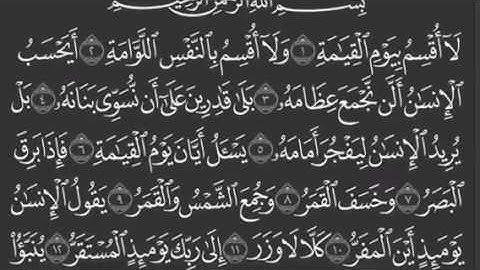 بِسْمِ ٱللَّهِ ٱلرَّحْمَٰنِ ٱلرَّحِيمِ
لَآ أُقْسِمُ بِيَوْمِ ٱلْقِيَٰمَةِ ١ وَلَآ أُقْسِمُ بِٱلنَّفْسِ ٱللَّوَّامَةِ ٢ أَيَحْسَبُ
ٱلْإِنسَٰنُ أَلَّن نَّجْمَعَ عِظَامَهُۥ ٣ بَلَىٰ قَٰدِرِينَ عَلَىٰٓ أَن نُّسَوِّىَ بَنَانَهُۥ ٤ بَلْ
يُرِيدُ ٱلْإِنسَٰنُ لِيَفْجُرَ أَمَامَهُۥ ٥ يَسْـَٔلُ أَيَّانَ يَوْمُ ٱلْقِيَٰمَةِ ٦ فَإِذَا بَرِقَ
ٱلْبَصَرُ ٧ وَخَسَفَ ٱلْقَمَرُ ٨ وَجُمِعَ ٱلشَّمْسُ وَٱلْقَمَرُ ٩ يَقُولُ ٱلْإِنسَٰنُ
يَوْمَئِذٍ أَيْنَ ٱلْمَفَرُّ ١٠ كَلَّا لَا وَزَرَ ١١ إِلَىٰ رَبِّكَ يَوْمَئِذٍ ٱلْمُسْتَقَرُّ ١٢ يُنَبَّؤُا۟